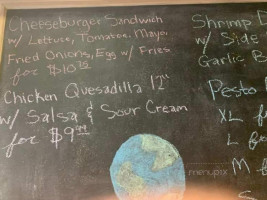 Cheeseburger Sandwich
w/ Lettuce, Tomatoe, Mayo,
Fried Onions, Egg w/ Fries
for $10.75
Chicken Quesadilla 12"
w/ Salsa & Sour Cream
for $9.99
Shrimp
w/ Side
Garlic B
Pesto
XL f
L f
M - f
S
menupix